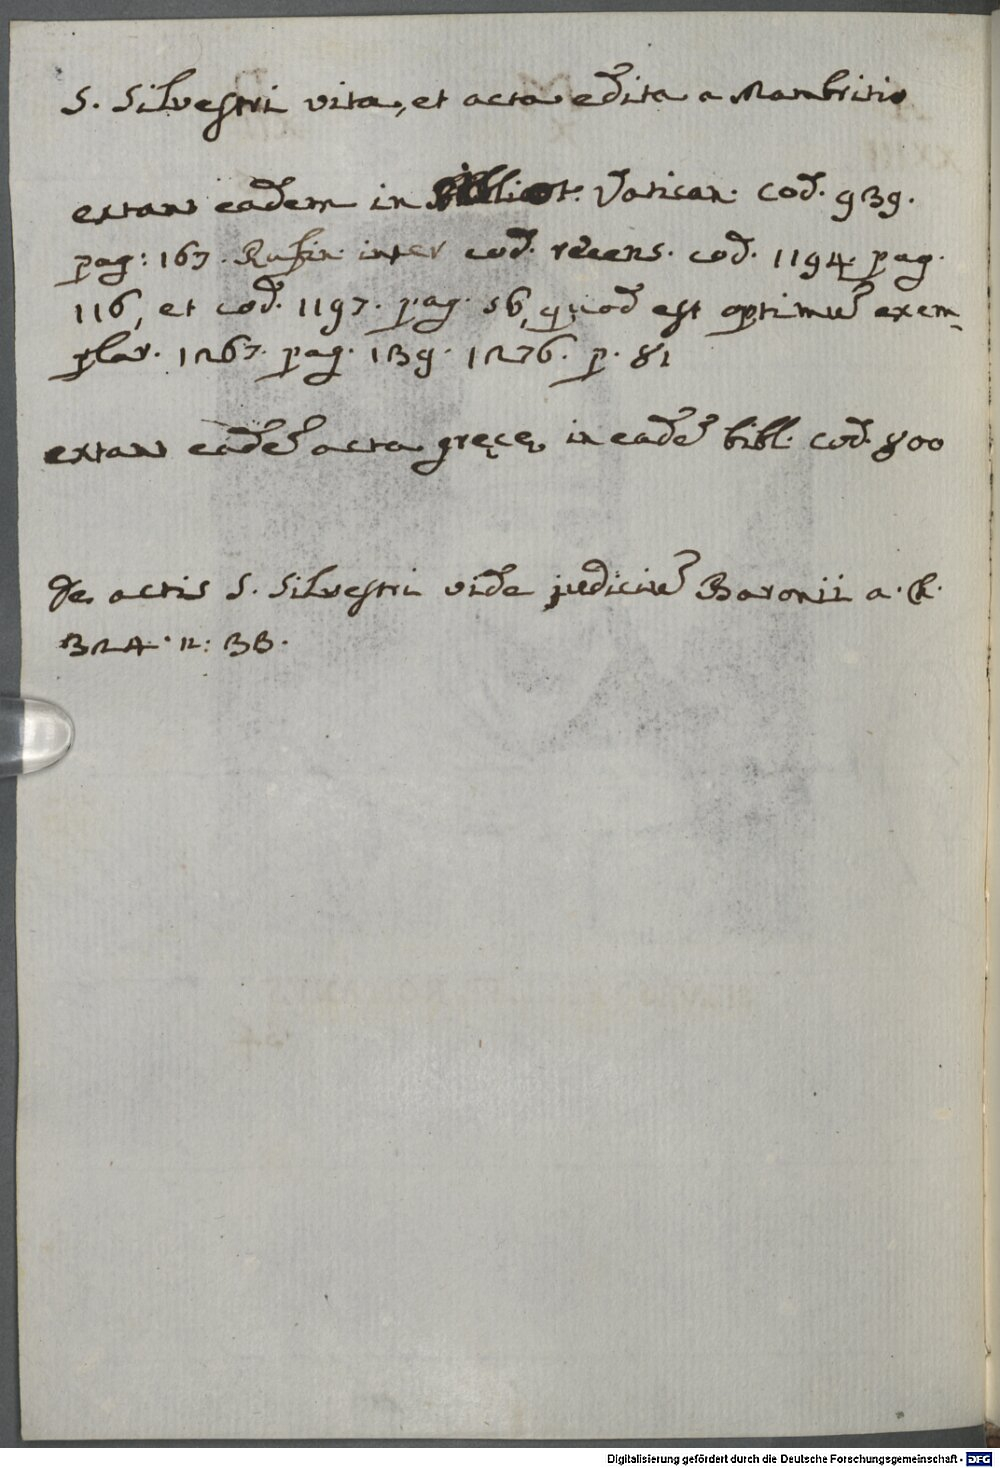 S. Silvestri vita, et acta edita a Mombritio
extant eadem in Bibliot. Vatican. Cod. 939.
pag: 167. Rufin. inter cod. recens. cod. 1194. pag.
116, et cod. 1197. pag. 56, quod est optimũ exem-
plar. 1267. pag. 139. 1276. p. 81
extant eadẽ acta gręcę in eadẽ bibl. cod. 800
De actis S. Silvestri vide judiciũ Baronii a. Ch.
324. n: 33.
Digitalisierung gefördert durch die Deutsche Forschungsgemeinschaft - DFG